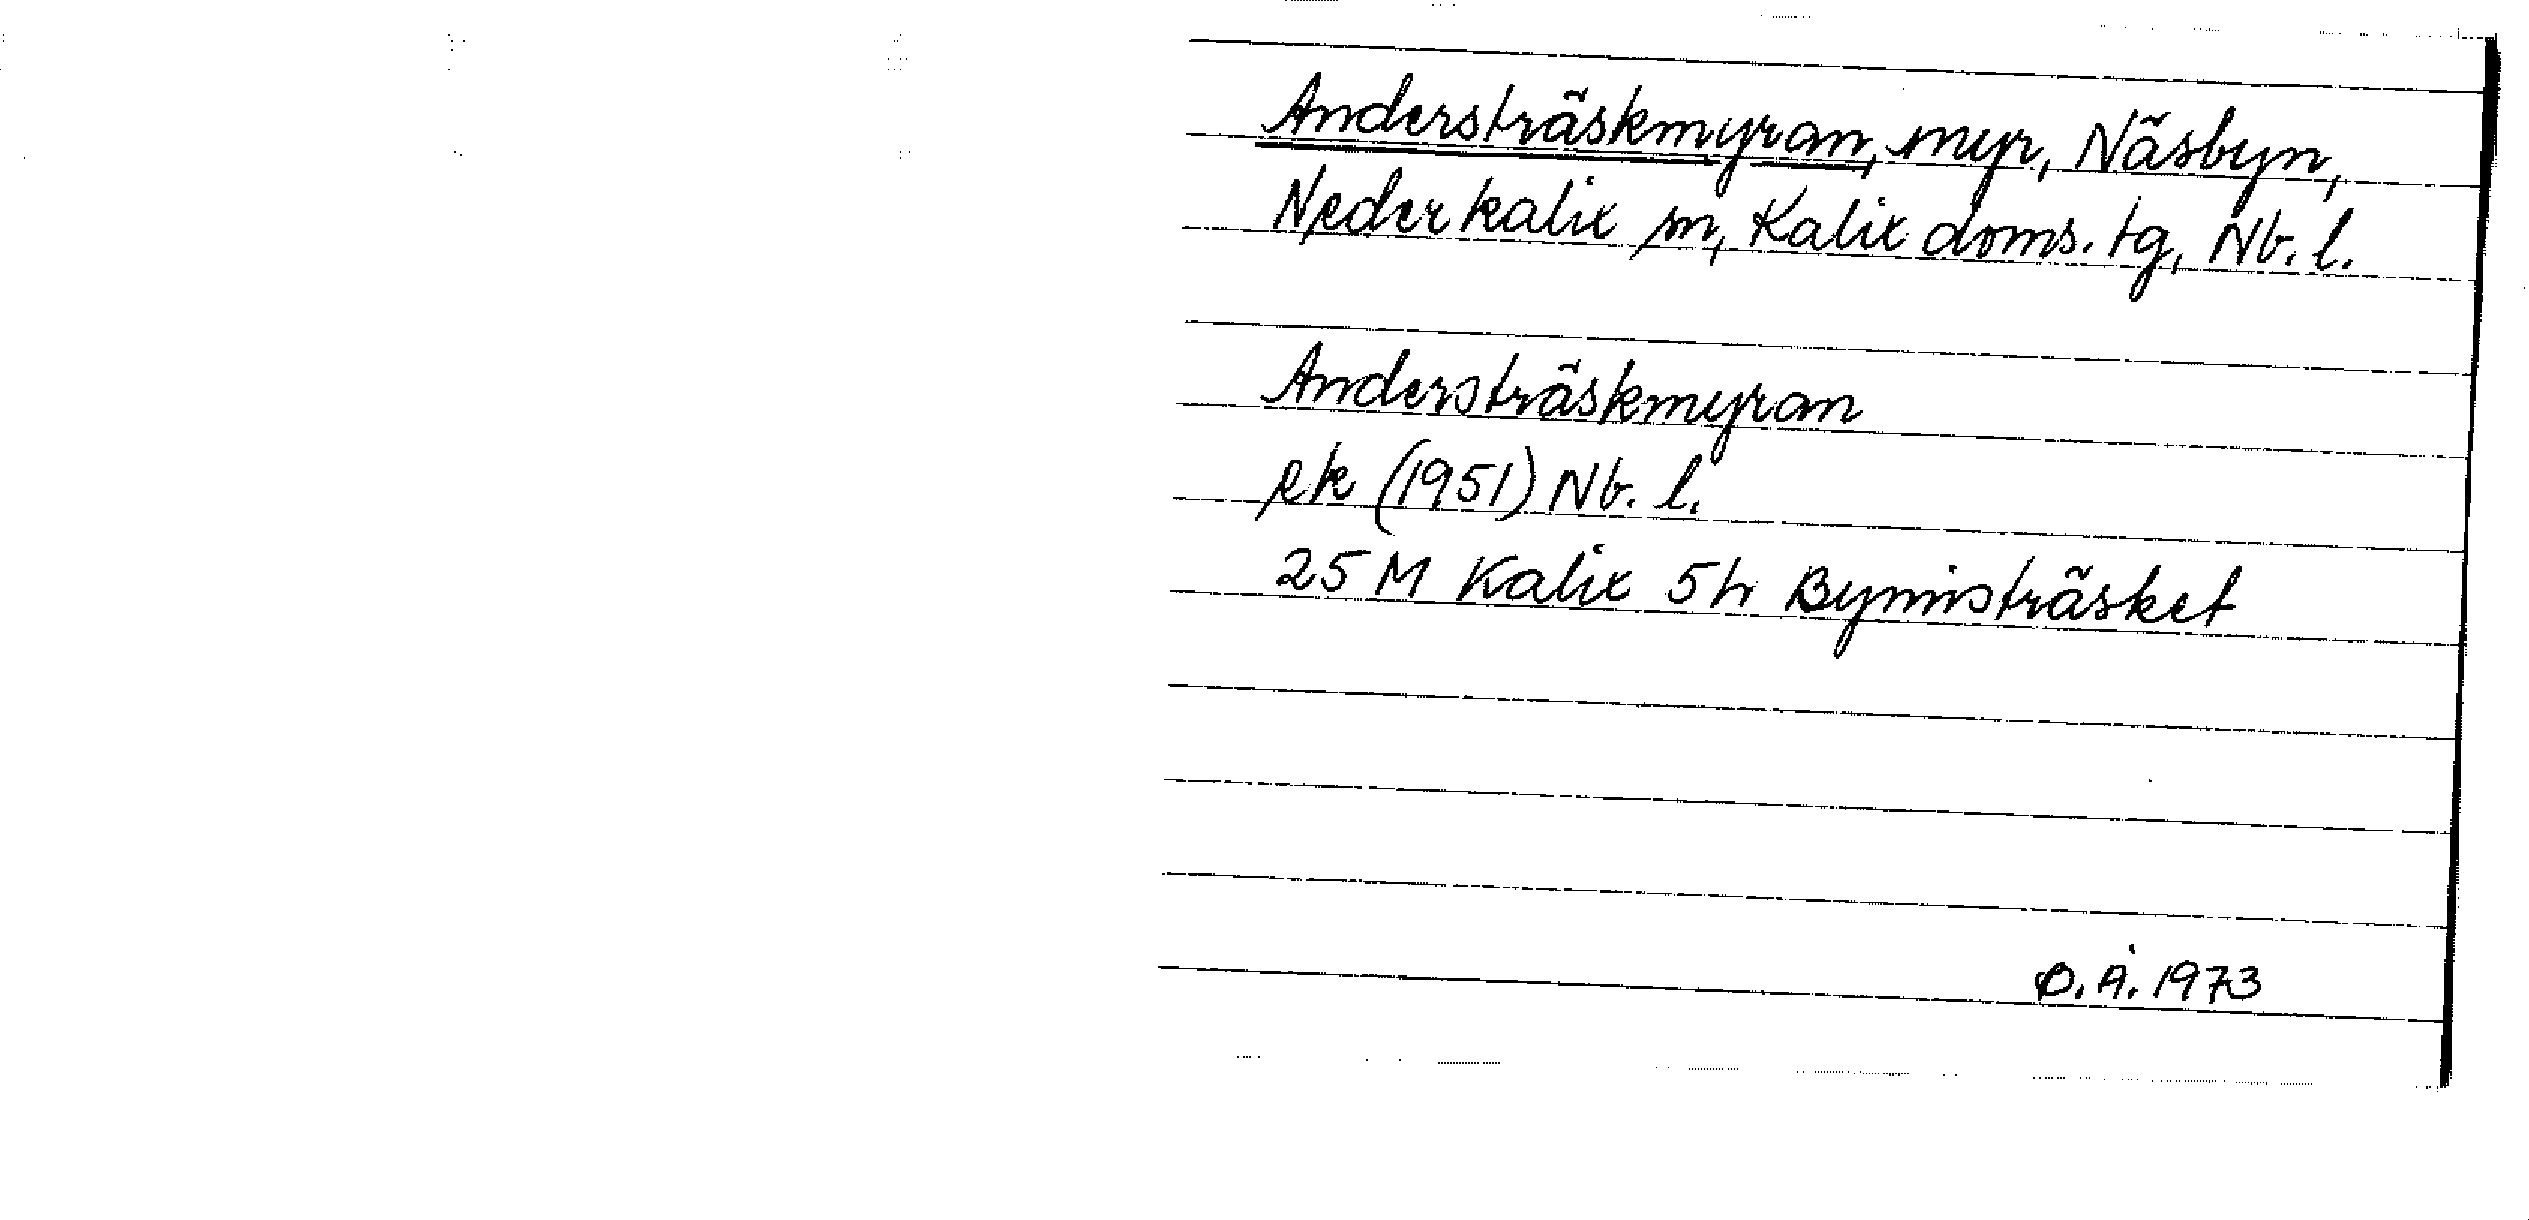 Andersträskmyran, myr, Näsbyn,
Nederkalix sn, Kalix doms. tg, Nb. l.
Andersträskmyran
ek (1951) Nb. l.
25 M Kalix 5h Byninsträsket
O. Å. 1973